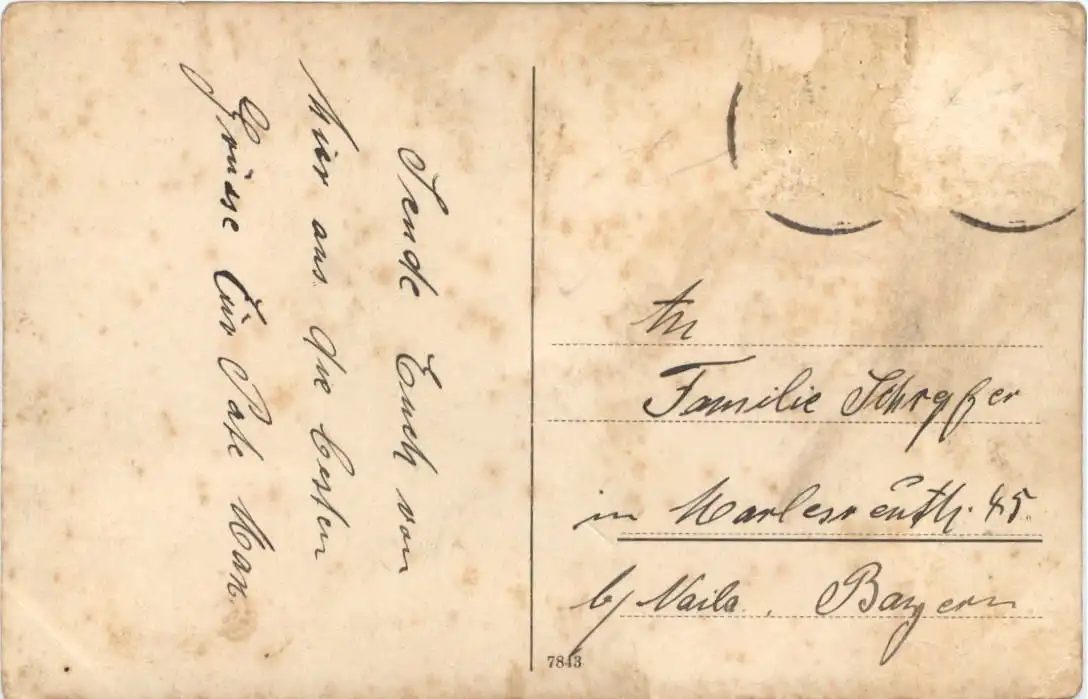 Sende Euch von
hier aus die besten
Grüsse Eur Pate Max.
An
Familie
in Marlesreuth. 45.
b/ Naila. Bayern
7843